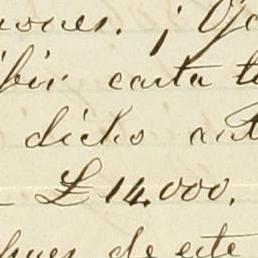 ciones. ¡ Oja
ibir carta t
dicho ant
£ 14.000.
pues de este